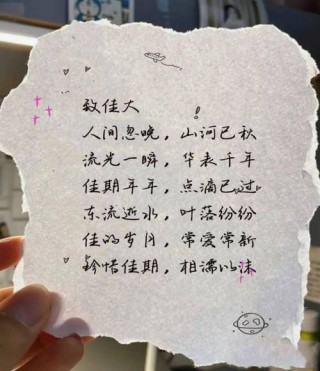 致佳大
人间忽晚，山河已秋
流光一瞬，华表千年
佳期年年，点滴已过
东流逝水，叶落纷纷
佳的岁月，常爱常新
珍惜佳期，相濡以沫